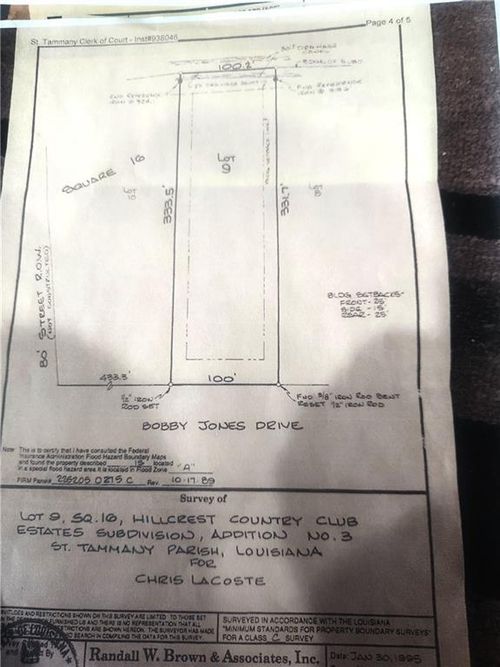 Page 4 of 5
St. Tammany Clerk of Court - Inst#938046
100.2'
SQUARE 16
LOT
10
LOT
9
LOT
8
333.5'
331.7'
80' STREET R.O.W.
(NOT CONSTRUCTED)
BLDG SETBACKS-
FRONT- 25'
SIDE - 15'
REAR- 25'
433.3'
100'
1/2" IRON
ROD SET
FND 5/8" IRON ROD BENT
RESET 1/2" IRON ROD
BOBBY JONES DRIVE
Note: This is to certify that I have consulted the Federal
Insurance Administration Flood Hazard Boundary Maps
and found the property described IS located
in a special flood hazard area it is located in Flood Zone "A"
FIRM Panel# 225205 0275 C Rev. 10-17-89
Survey of
LOT 9, SQ.16, HILLCREST COUNTRY CLUB
ESTATES SUBDIVISION, ADDITION NO.3
ST. TAMMANY PARISH, LOUISIANA
FOR
CHRIS LACOSTE
AND RESTRICTIONS SHOWN ON THIS SURVEY ARE LIMITED TO THOSE SET
FURNISHED US AND THERE IS NO REPRESENTATION THAT ALL
ARE SHOWN HEREON. THE SURVEYOR HAS MADE
NO SEARCH IN COMPILING THE DATA FOR THIS SURVEY.
SURVEYED IN ACCORDANCE WITH THE LOUISIANA
"MINIMUM STANDARDS FOR PROPERTY BOUNDARY SURVEYS"
FOR A CLASS C SURVEY
Randall W. Brown & Associates, Inc.
Date: JAN 30, 1995